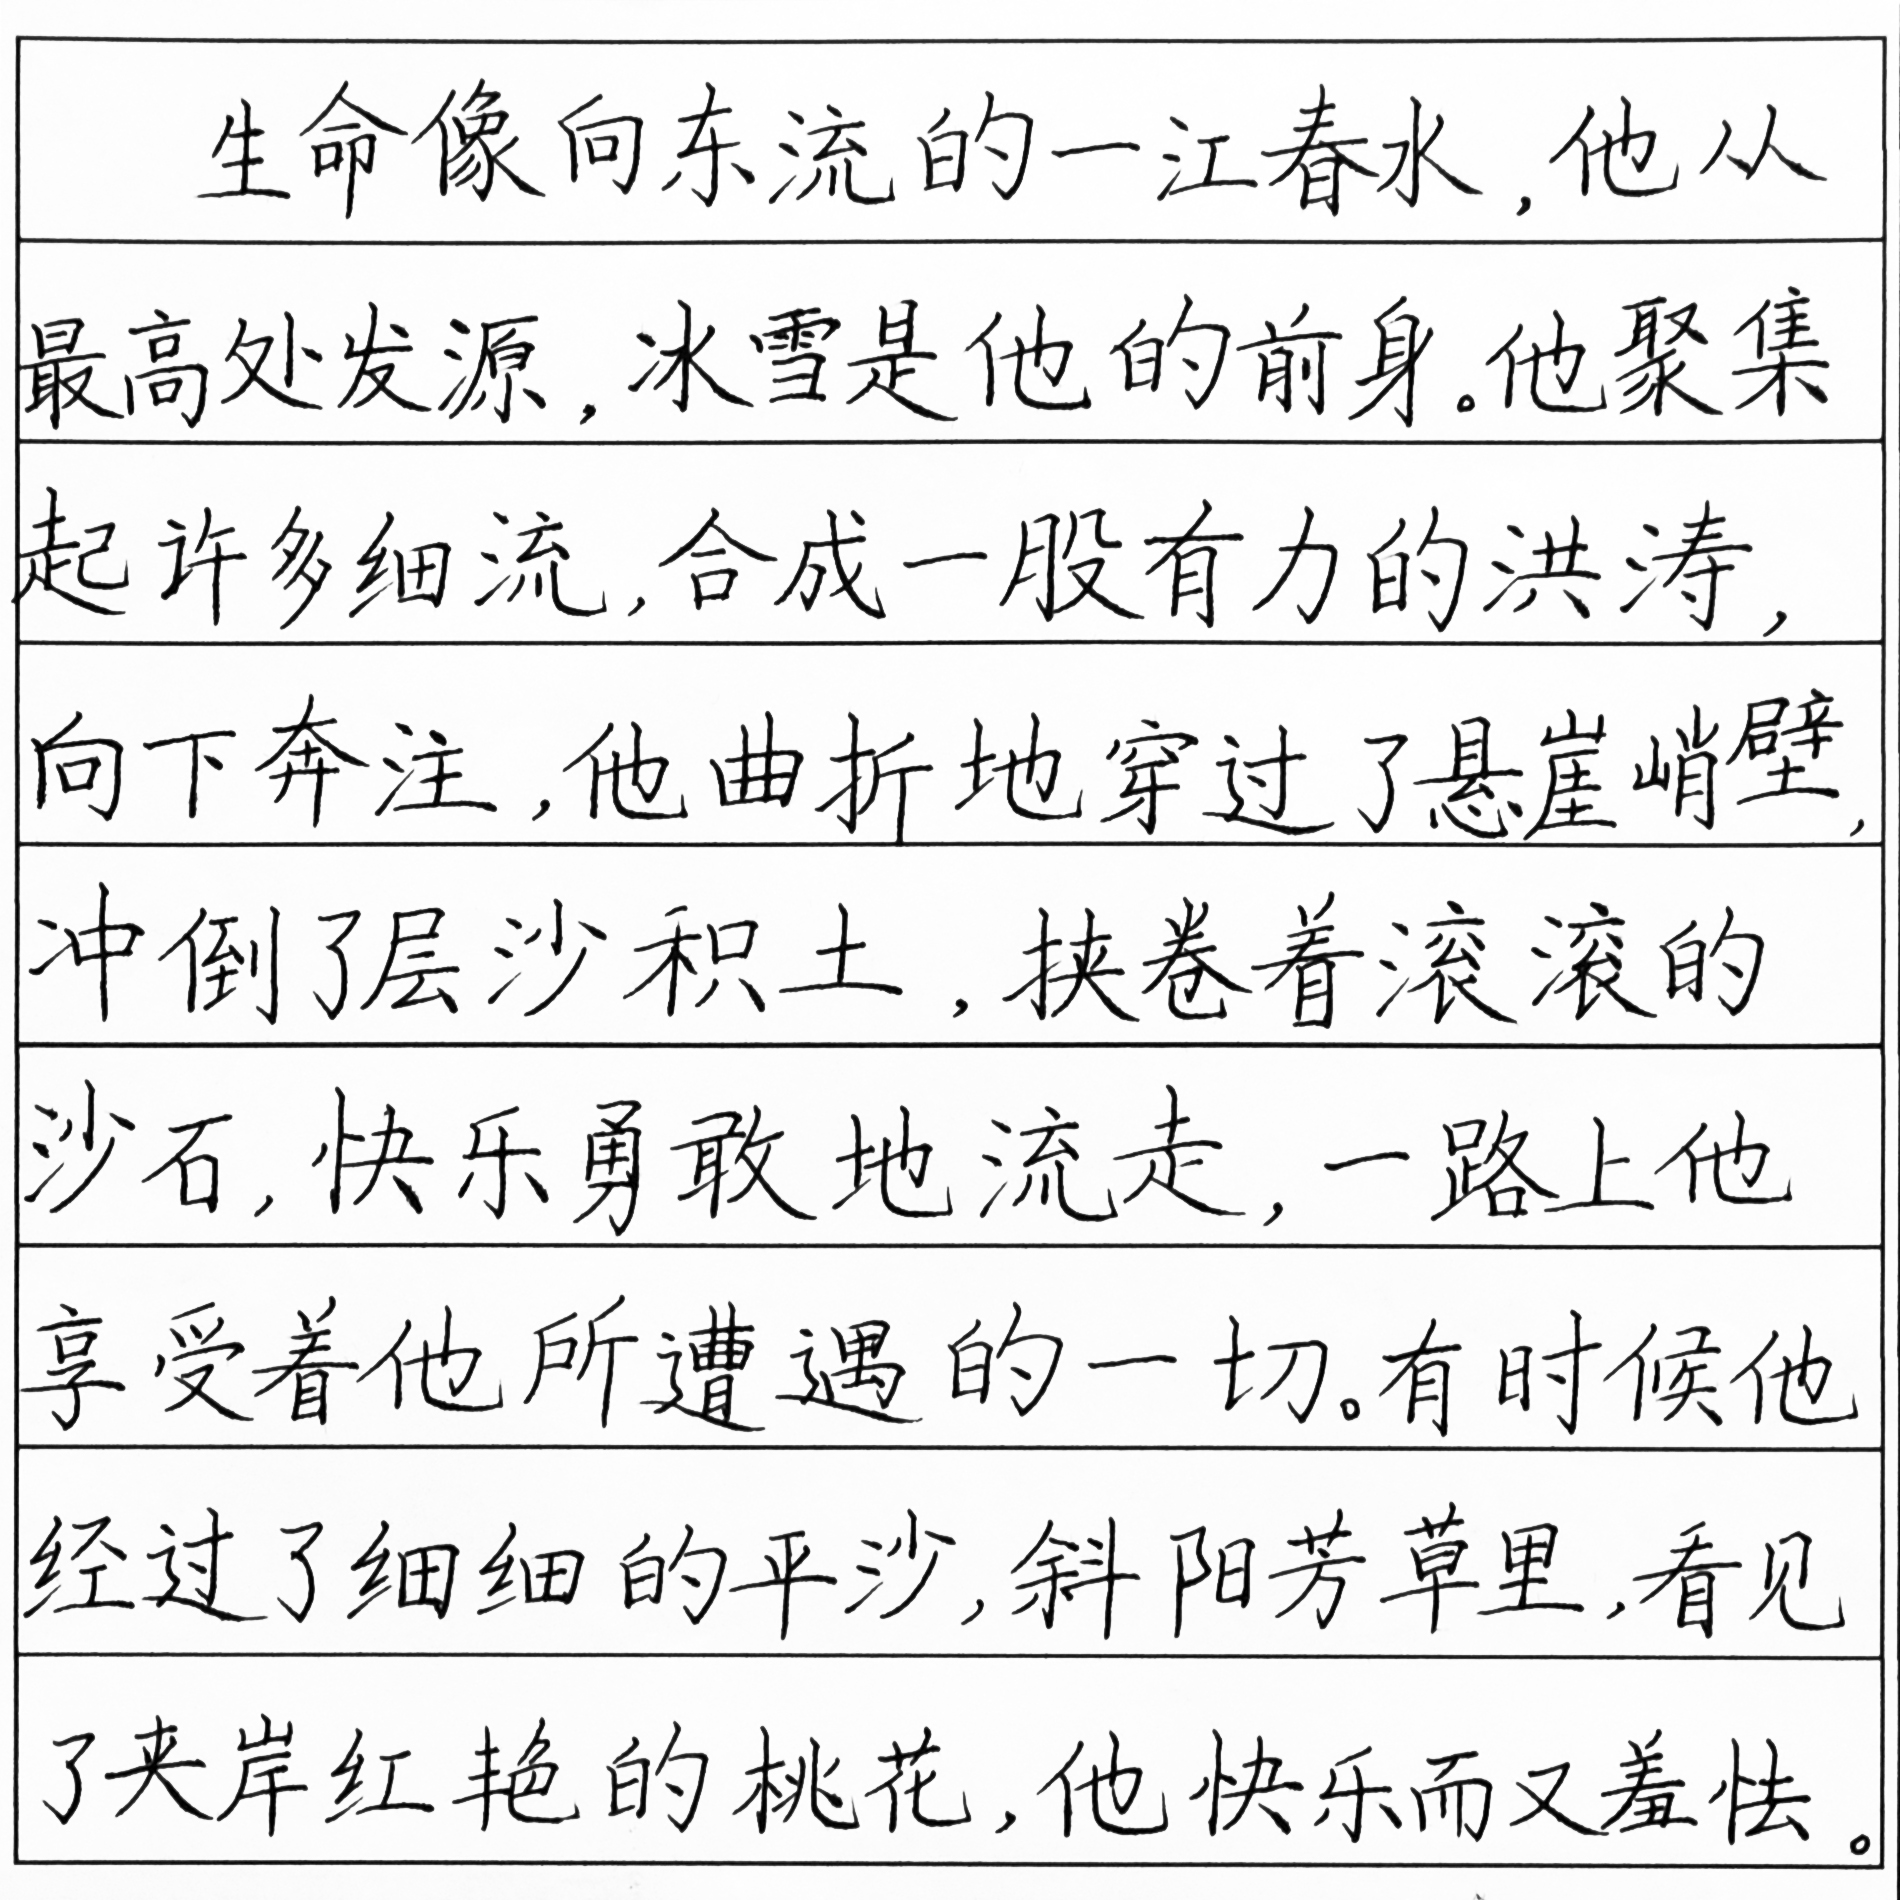 生命像向东流的一江春水，他从
最高处发源，冰雪是他的前身。他聚集
起许多细流，合成一股有力的洪涛，
向下奔注，他曲折地穿过了悬崖峭壁，
冲倒了层沙积土，挟卷着滚滚的
沙石，快乐勇敢地流走，一路上他
享受着他所遭遇的一切。有时候他
经过了细细的平沙，斜阳芳草里，看见
了夹岸红艳的桃花，他快乐而又羞怯。